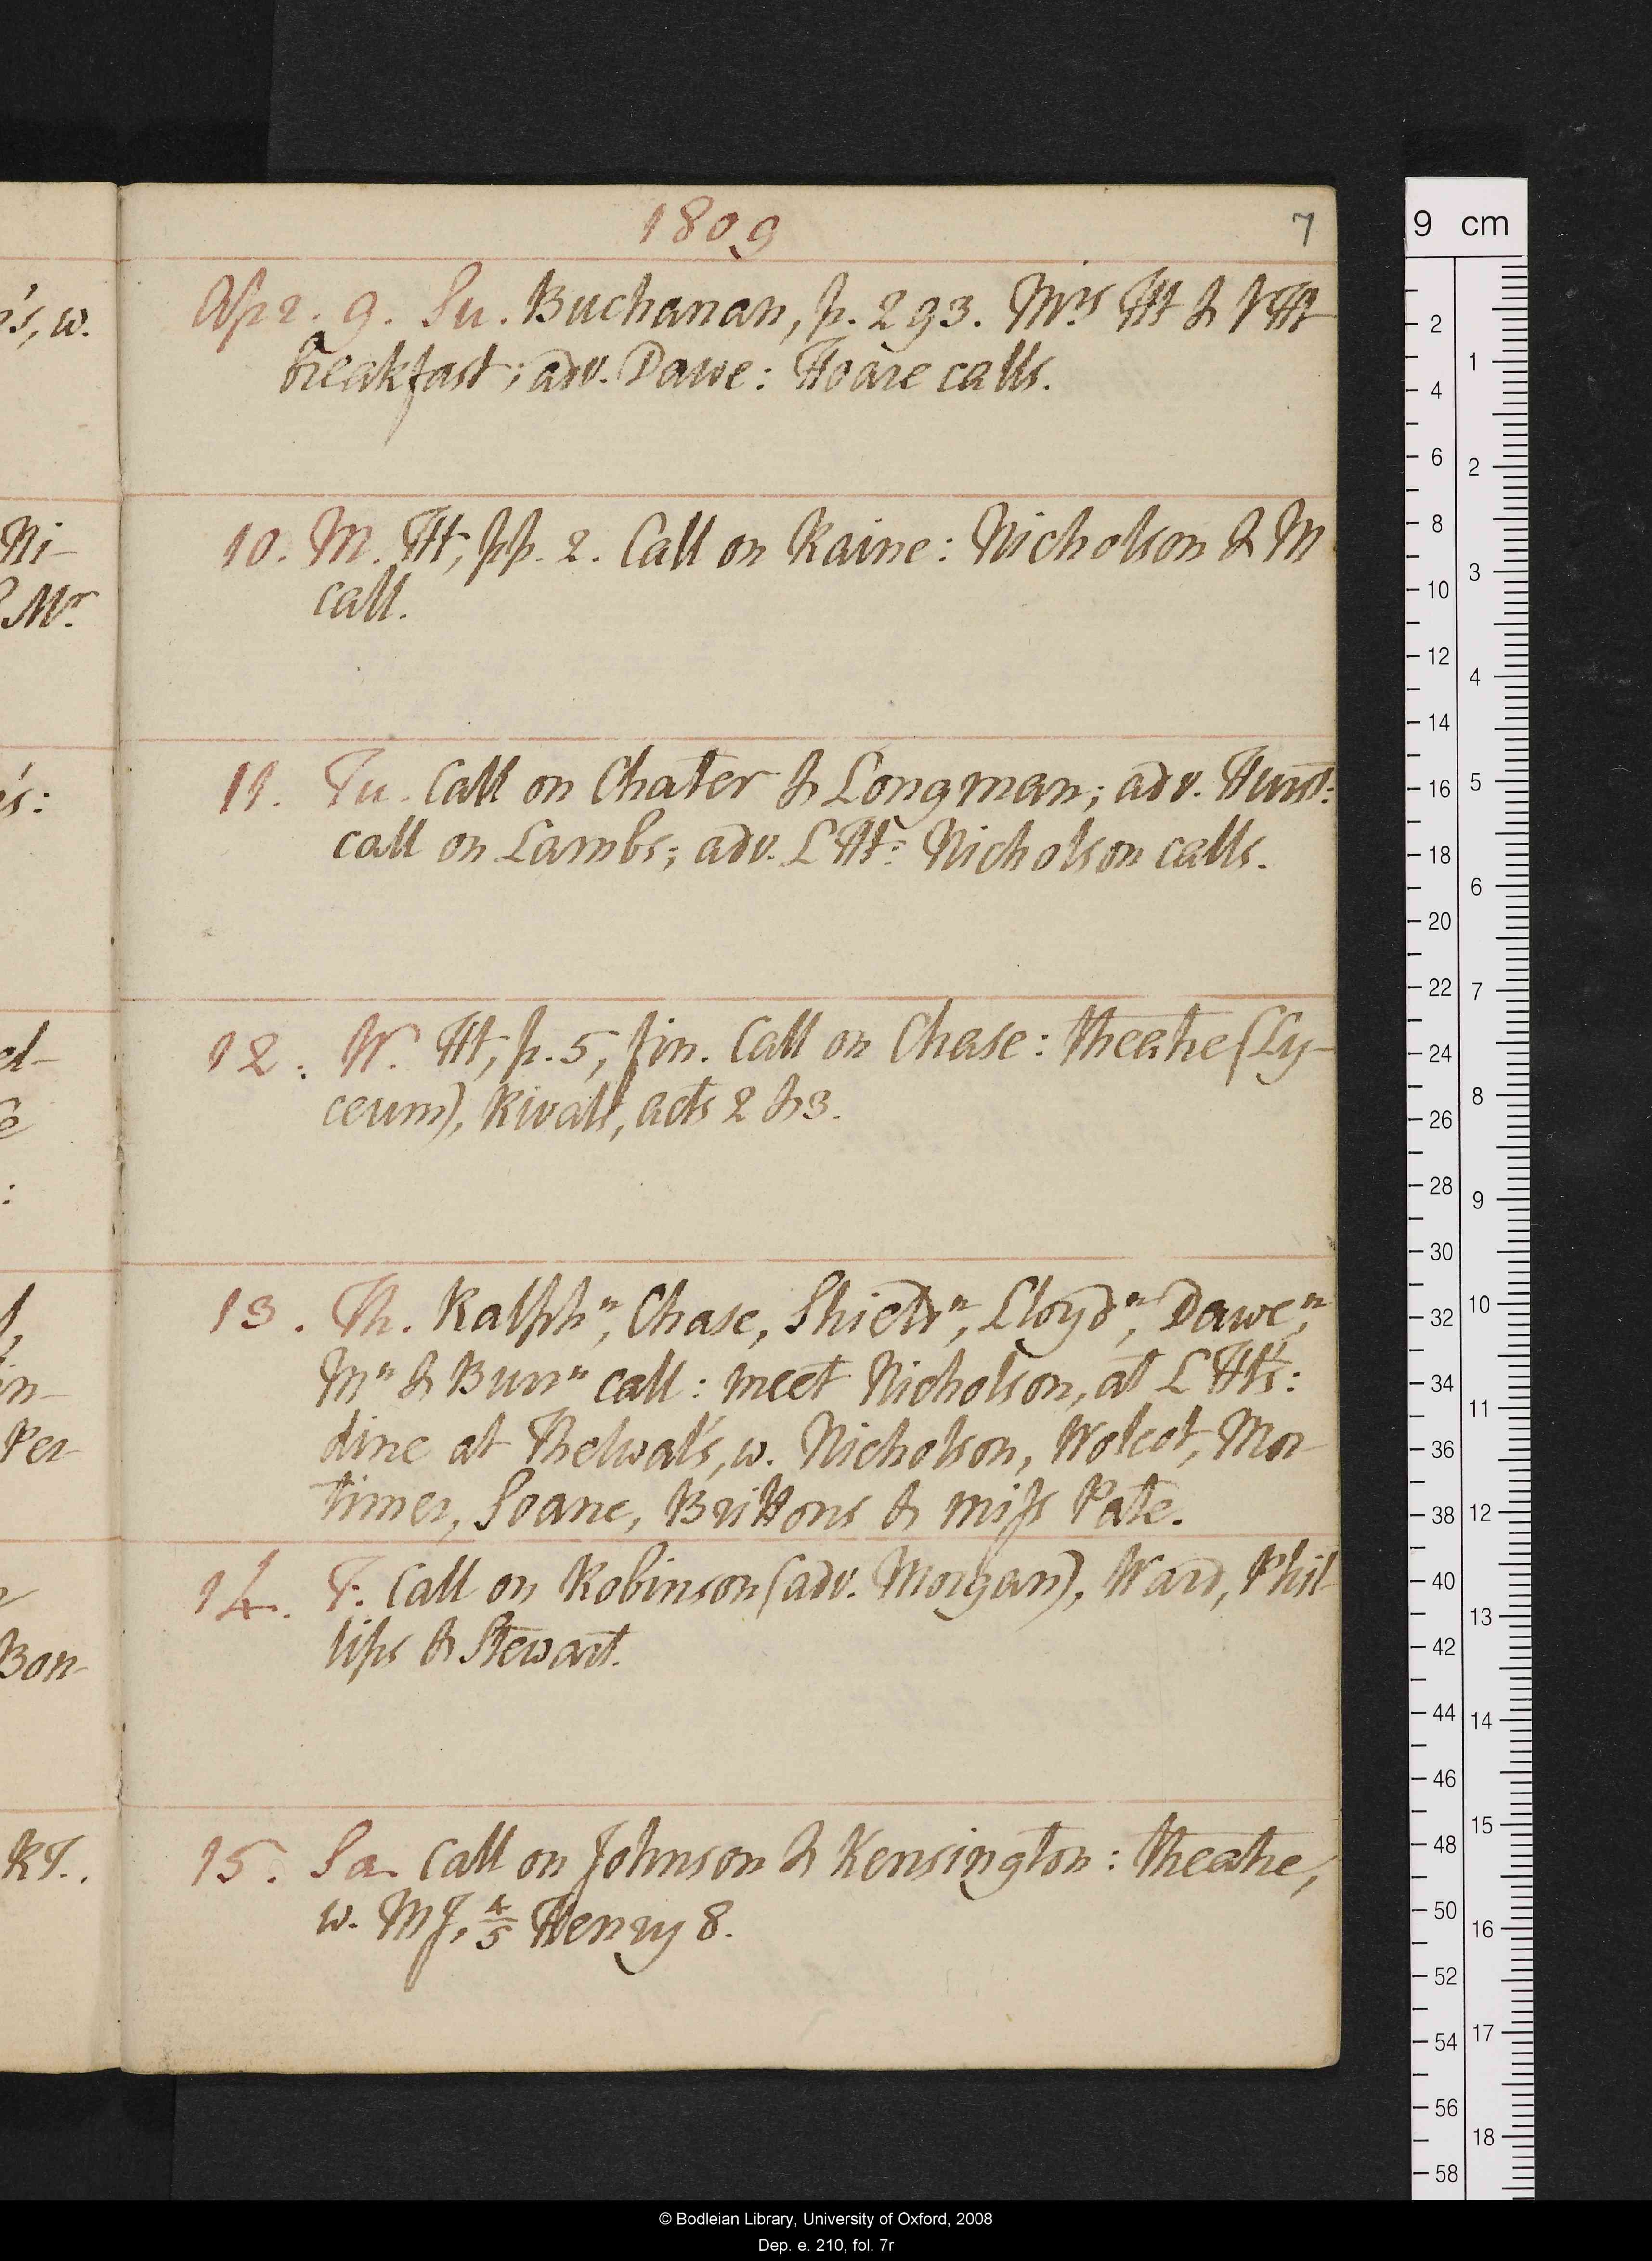 1809
7
Apr. 9. Su. Buchanan, p. 293. Mrs Ht & VHt
breakfast; adv. Dawe: Hoare calls.
10. M. Ht, pp. 2. Call on Raine: Nicholson & M
call.
11. Tu. Call on Chater & Longman; adv. Hurst:
call on Lambs; adv. L Ht: Nicholson calls.
12. W. Ht, p. 5, fin. Call on Chase: theatre (Ly-
ceum), Rivals, acts 2 & 3.
13. Th. Ralph n, Chase, Shield n, Lloyd n, Dawe n,
M n & Burn n call: meet Nicholson, at L Ht's:
dine at Thelwal's, w. Nicholson, Wolcot, Mor-
timer, Soane, Brittons & miss Pate.
14. F. Call on Robinson (adv. Morgan), Ward, Phil-
lips & Stewart.
15. Sa. Call on Johnson & Kensington: theatre,
w. MJ, 4/5 Henry 8.
's, w.
Ni-
Mr.
's:
el-
:
in-
Per
Bon-
KT..
9 cm
2 4 6 8 10 12 14 16 18 20 22 24 26 28 30 32 34 36 38 40 42 44 46 48 50 52 54 56 58
1 2 3 4 5 6 7 8 9 10 11 12 13 14 15 16 17 18
© Bodleian Library, University of Oxford, 2008
Dep. e. 210, fol. 7r